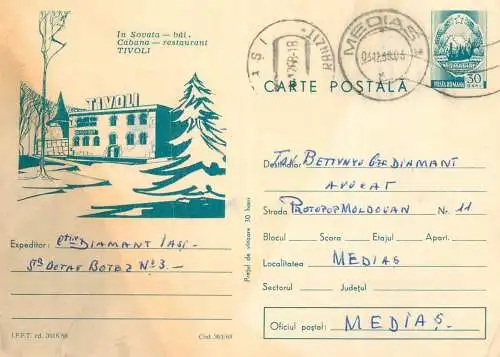 In Sovata — băi.
Cabana — restaurant
TIVOLI
TIVOLI
MEDIAȘ
POSTA ROMANA 30 BANI
CARTE POSTALĂ
Destinatar
DIAMANT
AVOCAT
Strada PROTOPOP MOLDOVAN Nr. 11
Blocul Scara Etajul Apart.
Localitatea MEDIAȘ
Sectorul Județul
Oficiul poștal: MEDIAȘ.
Expeditor: DIAMANT IAȘI -
BOTEZ No 3. -
Prețul de vînzare 30 bani
I.P.P.T. cd. 3018/68
Cod 363/68